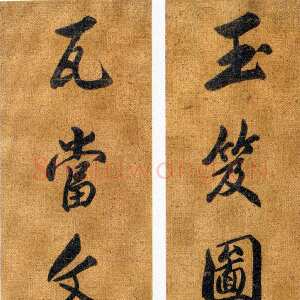 玉笈圖
瓦當文